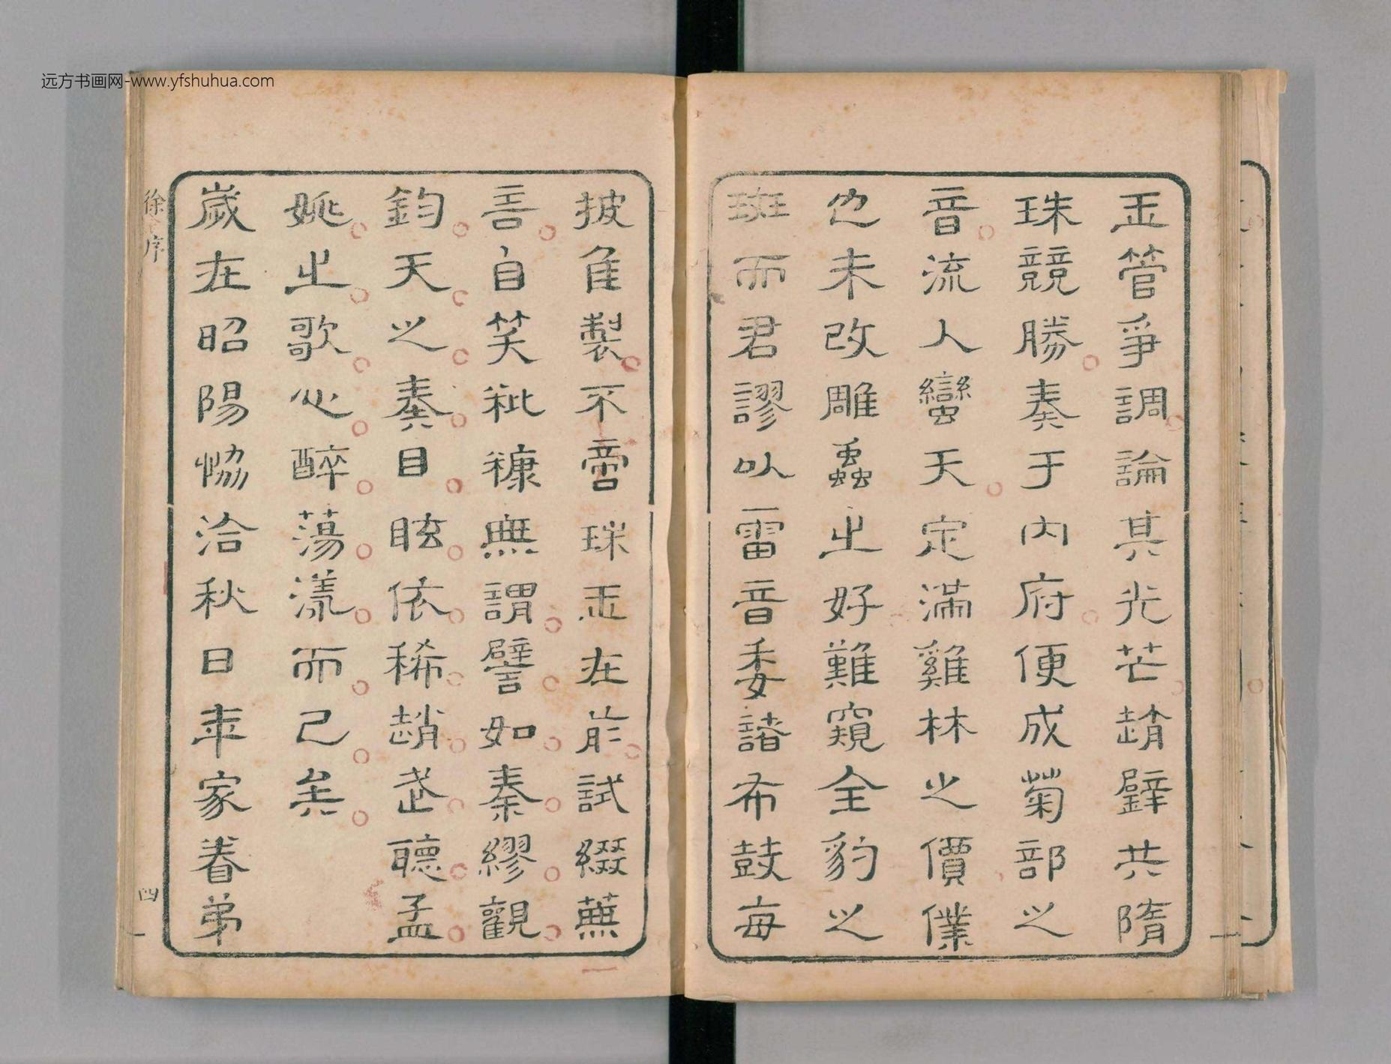 远方书画网-www.yfshuhua.com
玉管爭調論其光芒趙璧共隋
珠競勝奏于內府便成菊部之
音流人蠻天定滿雞林之價僕
也未改雕蟲之好難窺全豹之
斑而君謬以雷音委諸布鼓每
披隹製不啻珠玉在前試綴蕪
言自笑秕糠無謂譬如秦繆觀
鈞天之奏目眩依稀趙武聽孟
姚之歌心醉蕩漾而已矣
歲在昭陽協洽秋日年家眷弟
徐序
四